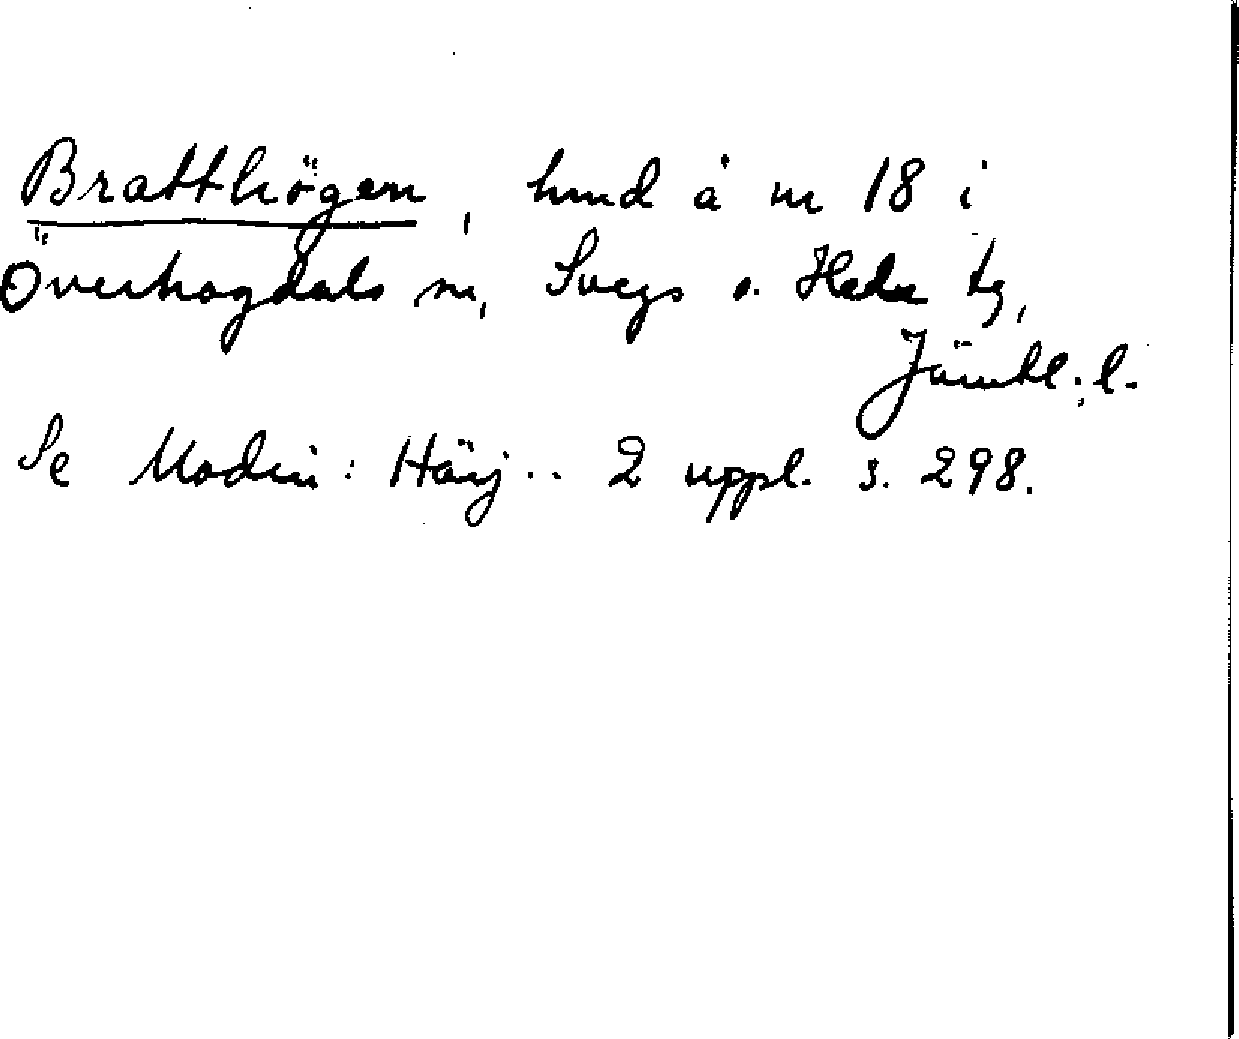 Bratthögen, hmd å nr 18 i
Överhogdals sn, Svegs o. Hede tg,
Jämtl. l.
Se Modin: Härj... 2 uppl. s. 298.